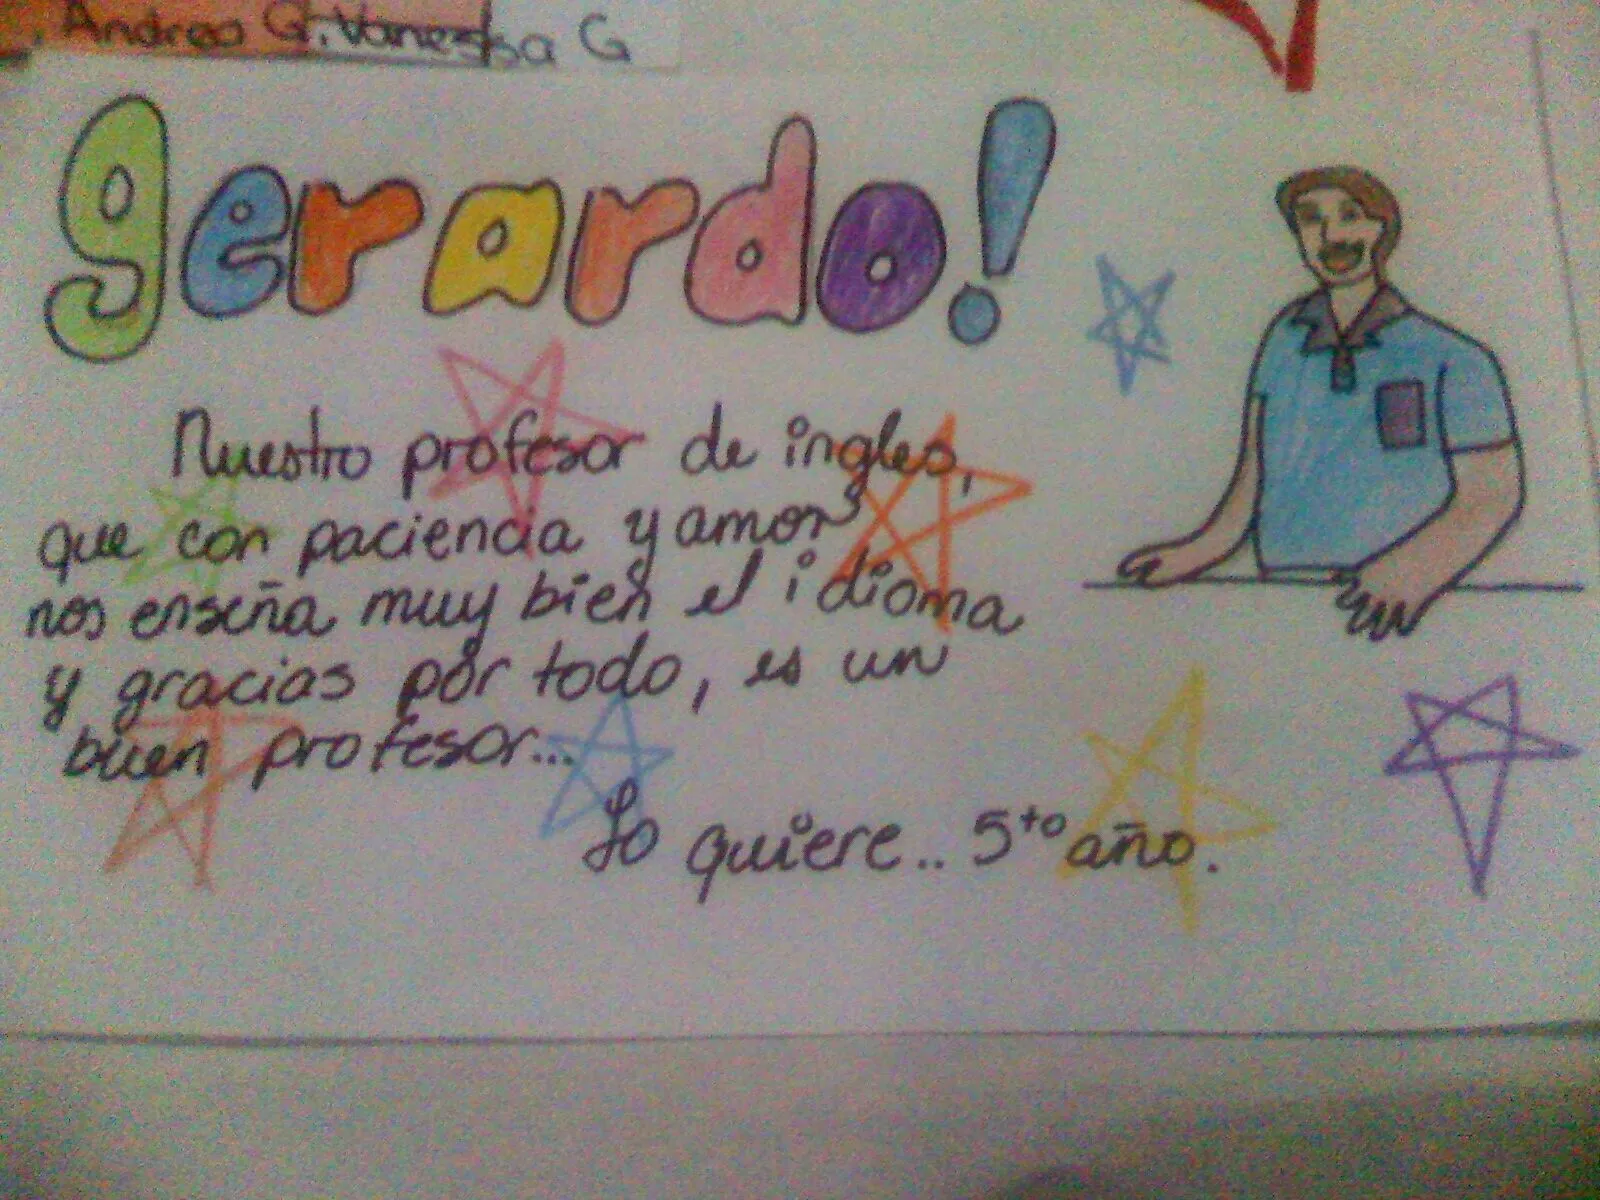 Andrea G. Vanessa G
gerardo!
Nuestro profesor de ingles,
que con paciencia y amor
nos enseña muy bien el idioma
y gracias por todo, es un
buen profesor...
Lo quiere.. 5to año.